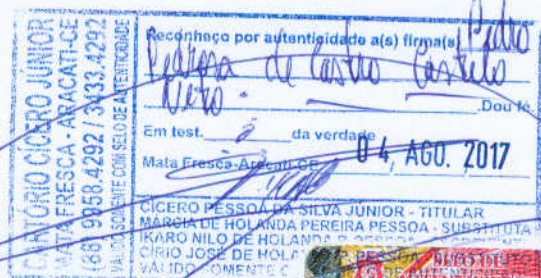 CARTÓRIO CÍCERO JÚNIOR
MATA FRESCA - ARACATI-CE
(88) 9958.4292 / 3433.4292
VÁLIDO SOMENTE COM SELO DE AUTENTICIDADE
Reconheço por autenticidade a(s) firma(s) Pedro
Pedrosa de Castro Castelo
Neto
.Dou fé.
Em test. da verdade
Mata Fresca-Aracati-CE 04, AGO. 2017
CÍCERO PESSOA DA SILVA JÚNIOR - TITULAR
MÁRCIA DE HOLANDA PEREIRA PESSOA - SUBSTITUTA
IKARO NILO DE HOLANDA
CÍRIO JOSÉ DE HOLANDA PESSOA SUBSTITUTO
VÁLIDO SOMENTE C DE AUTENTI